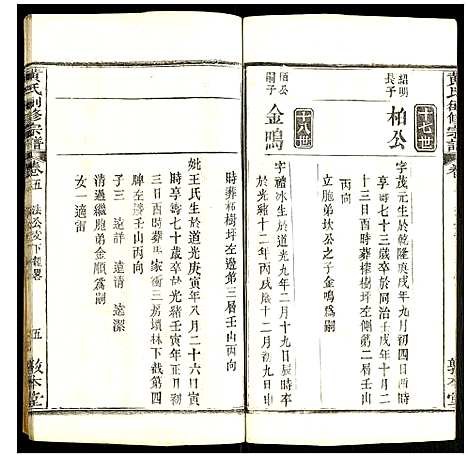 黃氏創修宗譜
卷
敦本堂
十七世
紹明長子
柏公
字茂元生於乾隆庚戌年九月初四日酉時
享壽七十三歲卒於同治壬戌年十二月
十三日酉時葬樹坪左側第二層壬山
丙向
立胞弟坎公之子金鳴為嗣
十八世
栢公嗣子
金鳴
字禮冰生於道光九年二月十九日辰時卒
於光緒十二年丙戌歲十二月初
時葬樹坪左邊第三層壬山丙向
妣王氏生於道光庚寅年八月二十六日寅
時享壽七十歲卒於光緒壬寅年正月初
三日酉時葬家衝三房墳林下截第四
碑左壬山丙向
子三 遠詳 遠清 遠潔
清過繼胞弟金順為嗣
女一 適雷
黃氏創修宗譜
卷五
法公
五
敦本堂